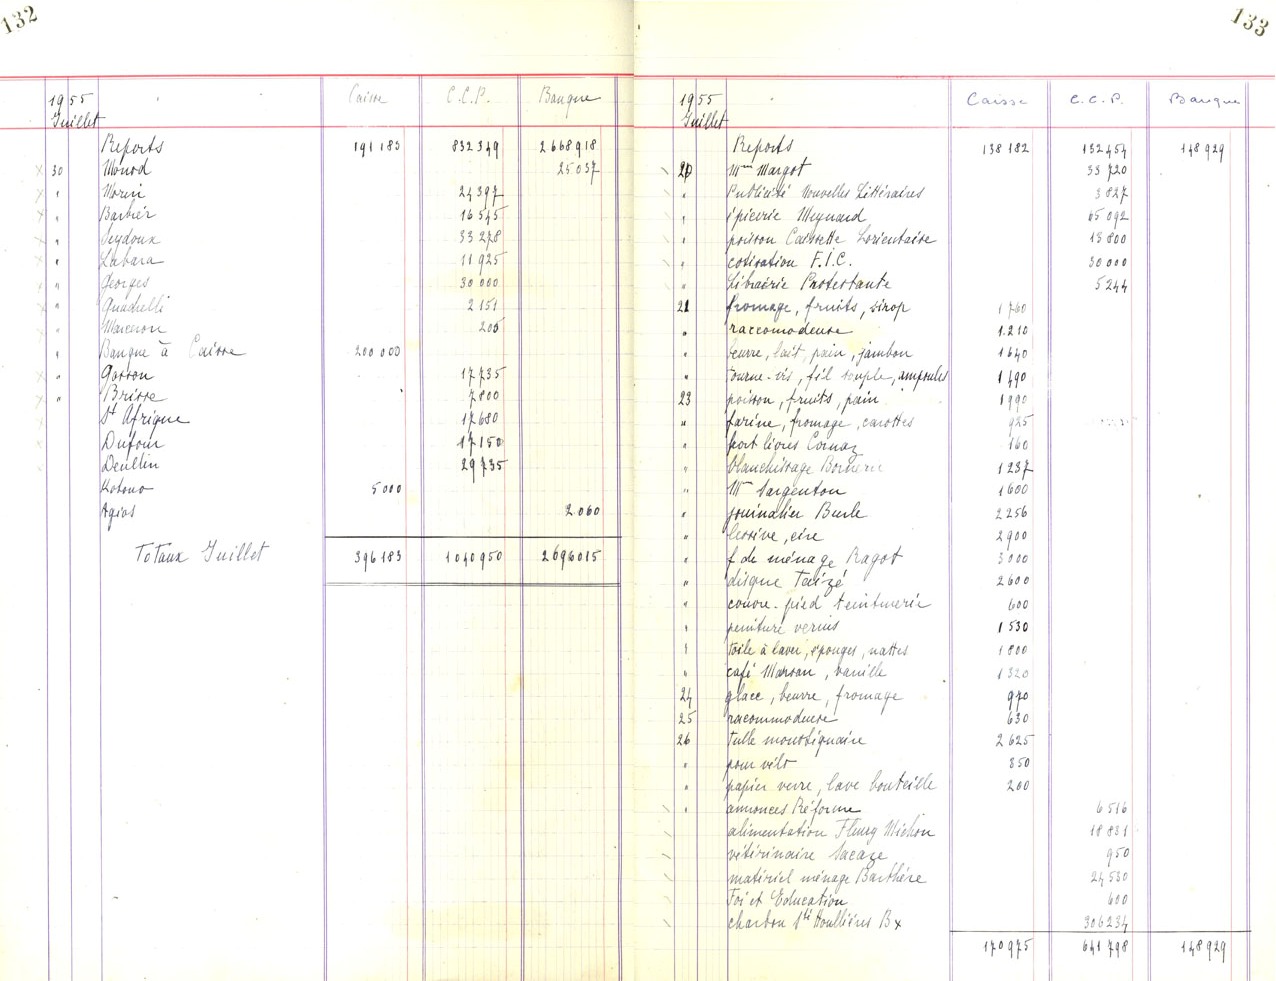 132
1955
Juillet
Caisse C.C.P. Banque
Reports 191 183 832 349 2 668 918
30 Monod 25 037
" Morin 24 397
" Barbier 16 545
" Seydoux 33 278
" Labara 11 925
" Georges 30 000
" Quadrelli 2 151
" 205
" Banque à Caisse 200 000
" Gosson 17 735
" Brisse 7 800
St Afrique 17 680
Dufour 17 150
Deultin 29 735
Kotono 5 000
Agios 2 060
Totaux Juillet 396 183 1 040 950 2 696 015
133
1955
Juillet
Caisse C.C.P. Banque
Reports 138 182 132 454 148 929
20 Mme Margot 33 720
" Publicité Nouvelles Littéraires 3 827
" épicerie Meynard 65 092
" poisson Caissette Lorientaise 13 800
" cotisation F.I.C. 30 000
" Librairie Protestante 5 244
21 fromage, fruits, sirop 1 760
" raccomodeuse 1.210
" beurre, lait, pain, jambon 1 640
" tourne-vis, fil souple, ampoules 1 490
23 poisson, fruits, pain 1 990
" farine, fromage, carottes 925
" port livres Cornaz 160
" blanchissage 1 237
" Mme Sargenton 1 600
" journalier Burle 2 256
" lessive, cire 2 900
" f. de ménage Ragot 3 000
" disque Taizé 2 600
" couvre-pied teinturerie 600
" peinture vernis 1 530
" toile à laver, éponges, nattes 1 800
" café Marsan, vanille 1 320
24 glace, beurre, fromage 970
25 racommodeuse 630
26 tulle moustiquaire 2 625
" pour vélo 850
" papier verre, lave bouteille 200
" annonces Réforme 6 516
alimentation Fleury Michon 18 831
vétérinaire Lacaze 950
matériel ménage Barthère 24 530
Foi et Education 600
charbon Sté Houillères Bx 306 234
170 975 641 798 148 929